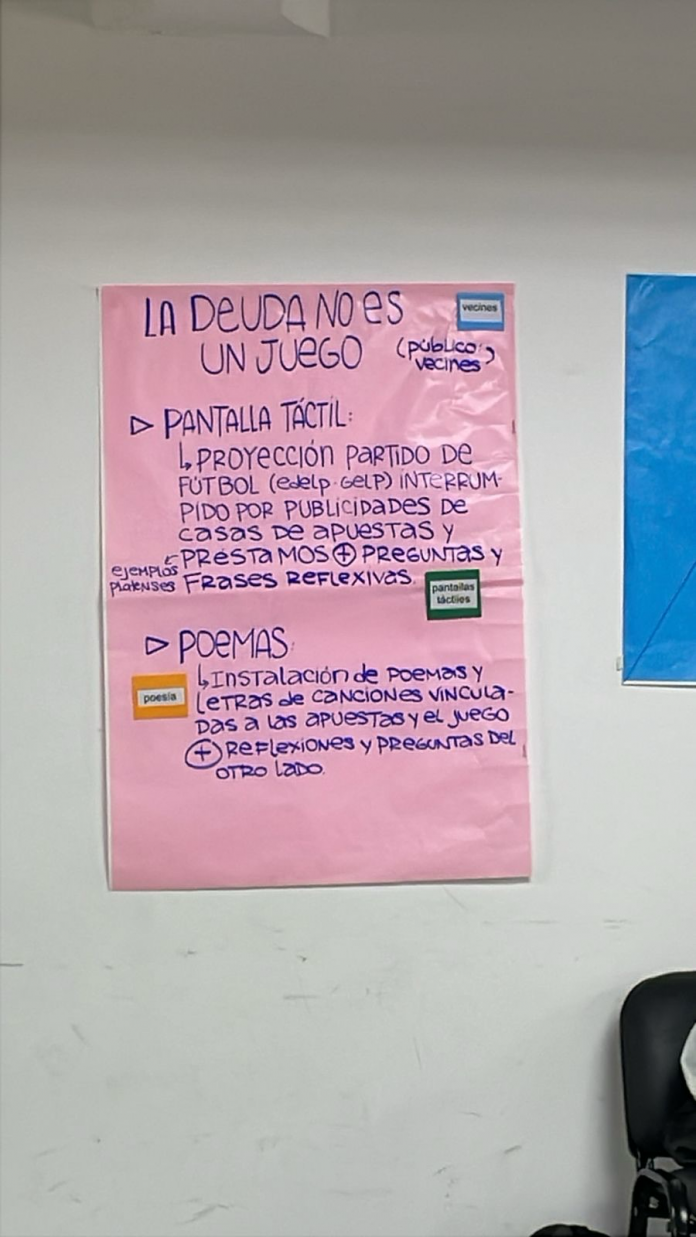 LA DEUDA NO ES
UN JUEGO
vecines
(público:
vecines)
▷ PANTALLA TÁCTIL:
↳ PROYECCIÓN PARTIDO DE
FÚTBOL (edelp-GELP) INTERRUM-
PIDO POR PUBLICIDADES DE
CASAS DE APUESTAS Y
PRÉSTAMOS ⊕ PREGUNTAS Y
FRASES REFLEXIVAS.
EJEMPLOS
PlatENSES
pantallas
táctiles
▷ POEMAS:
poesía
↳ INSTALACIÓN de POEMAS Y
LETRAS de CANCIONES VINCULA-
DAS A LAS APUESTAS Y EL JUEGO
⊕ REFLEXIONES Y PREGUNTAS DEL
OTRO LADO.